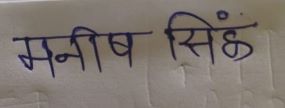 मनीष सिंह